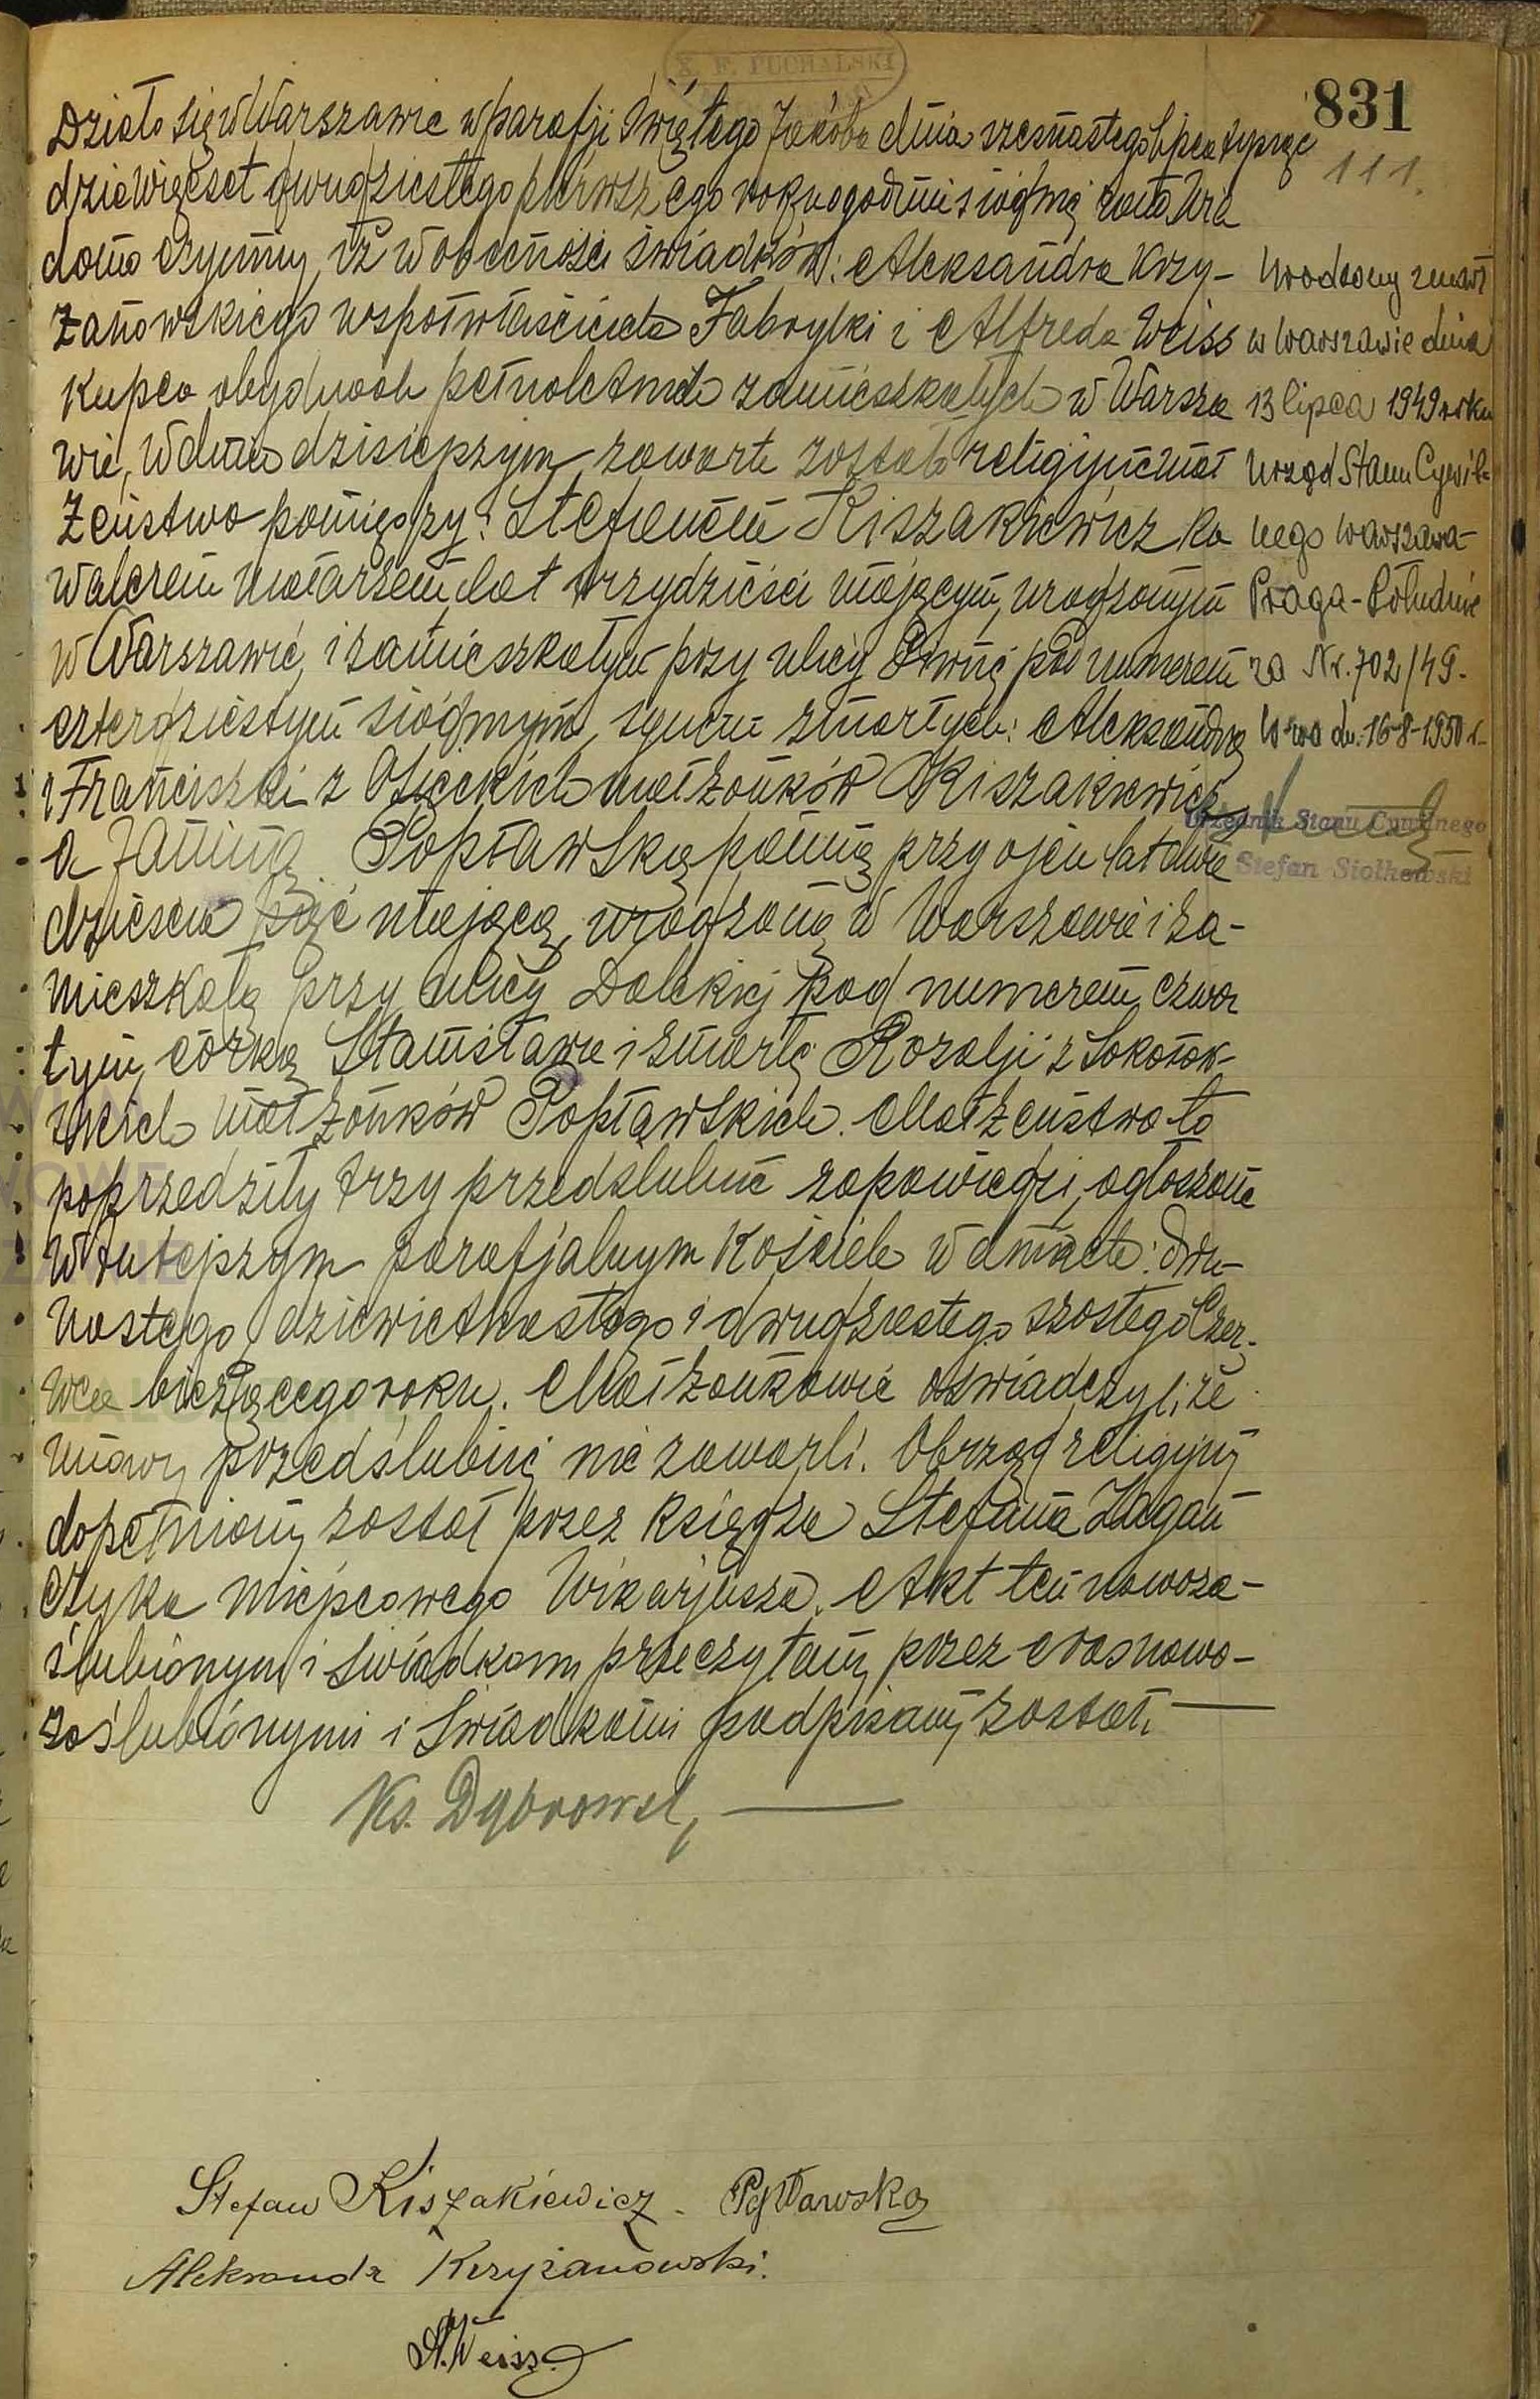 X. F. PUCHALSKI
831
111.
Działo się w Warszawie w parafji Świętego Jakóba dnia szesnastego lipca tysiąc
dziewięćset dwudziestego pierwszego roku o godzinie siódmej rano Wia
domo czynimy, iż w obecności świadków: Aleksandra Krzy-
żanowskiego współwłaściciela Fabryki i Alfreda Weiss
kupca obydwóch pełnoletnich zamieszkałych w Warsza
wie, w dniu dzisiejszym zawarte zostało religijne mał
żeństwo pomiędzy: Stefanem Kiszakiewicz ka
walerem malarzem lat trzydzieści mającym, urodzonym
w Warszawie, i zamieszkałym przy ulicy pod numerem
czterdziestym siódmym, synem zmarłych: Aleksandra
i Franciszki z Osieckich małżonków Kiszakiewicz
a Janiną Popławską panną przy ojcu lat dwa
dzieścia pięć mającą, urodzoną w Warszawie i za-
mieszkałą przy ulicy Dalekiej pod numerem czwar
tym, córką Stanisława i zmarłej Rozalji z Sokołow-
skich małżonków Popławskich. Małżeństwo to
poprzedziły trzy przedślubne zapowiedzi, ogłoszone
w tutejszym parafjalnym Kościele w dniach: dwu-
nastego, dziewiętnastego i dwudziestego szóstego Czer-
wca bieżącego roku. Małżonkowie oświadczyli, że
umowy przedślubnej nie zawarli. Obrząd religijny
dopełniony został przez Księdza Stefana Zagań
czyka miejscowego Wikarjusza. Akt ten nowoza-
ślubionym i świadkom przeczytany, przez nas nowo-
zaślubionymi i świadkami podpisany został.
Ks. Dąbrowsk
Stefan Kiszakiewicz - Popławska
Aleksandr Krzyżanowski.
A. Weiss
zmarł
w Warszawie dnia
13 lipca 1949 roku
Urząd Stanu Cywil-
nego Warszawa-
Praga-Południe
za Nr. 702/49.
W-wa dn. 16-8-1950 r.
Urzędnik Stanu Cywilnego
Stefan Siolkowski